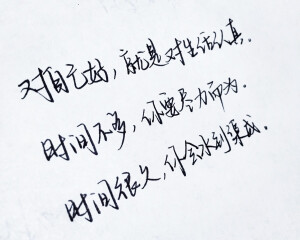 对自己好，就是对生活认真.
时间不多，你要尽力而为.
时间很久，你会水到渠成.